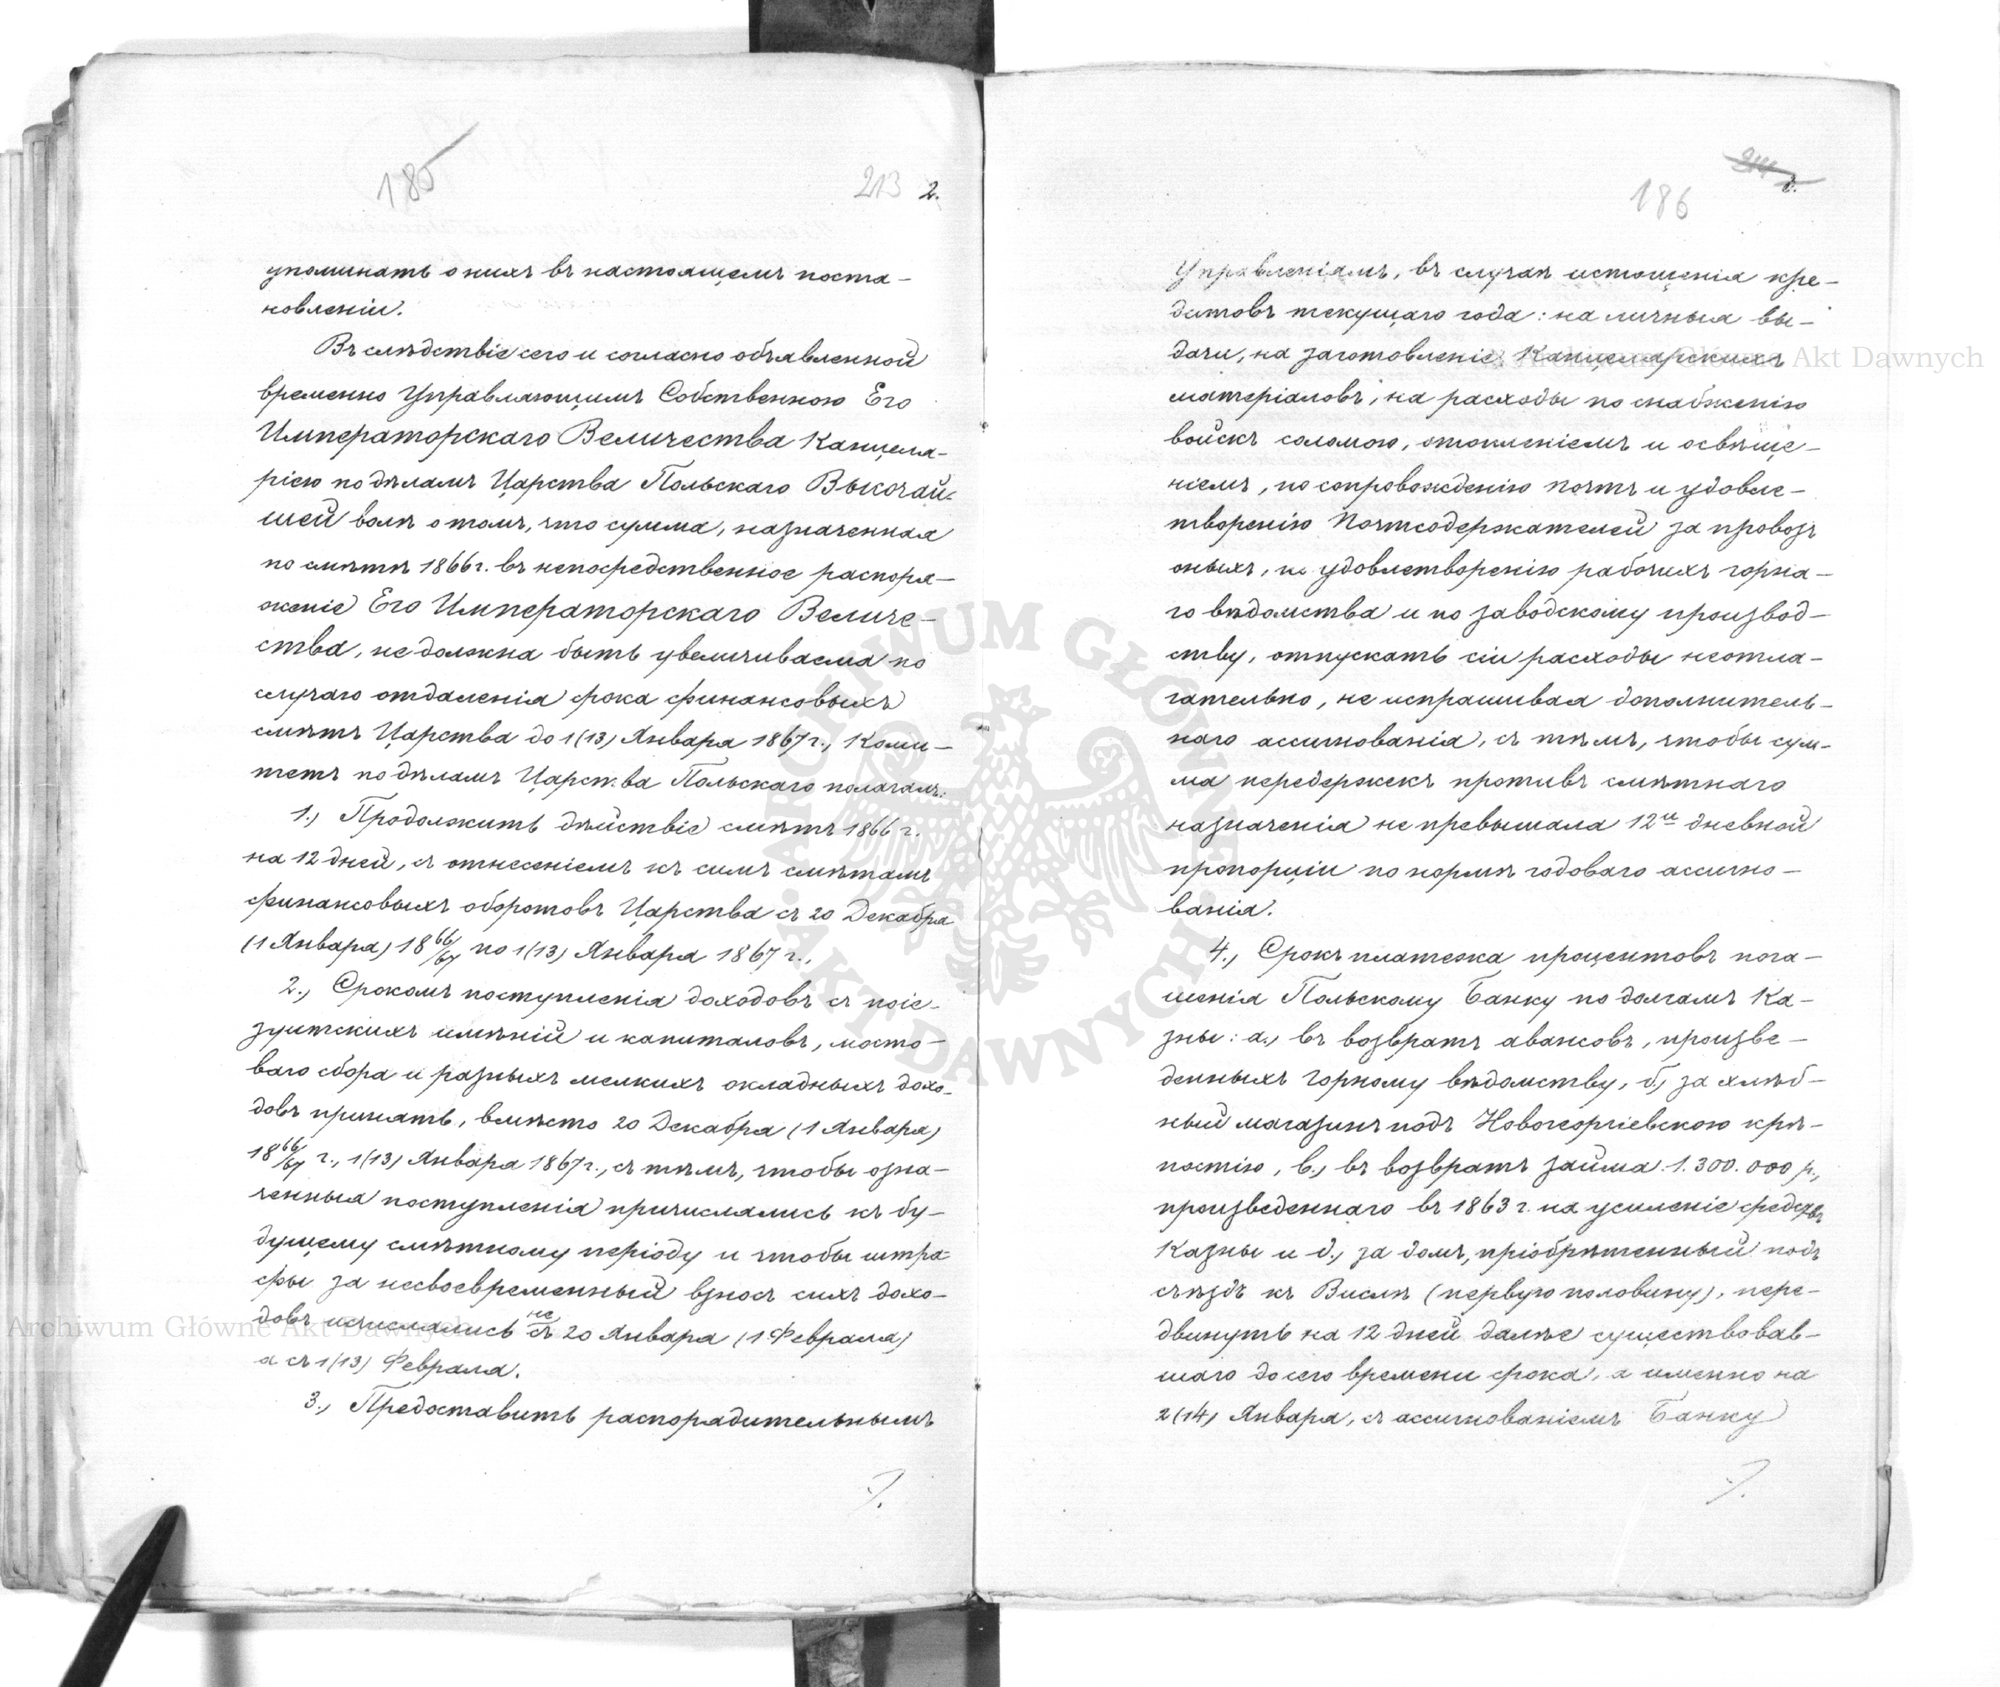 185
213 2.
упоминать о нихъ въ настоящемъ поста-
новленіи.
Въ слѣдствіе сего и согласно объявленной
временно Управляющимъ Собственною Его
Императорскаго Величества Канцеля-
ріею по дѣламъ Царства Польскаго Высочай-
шей волѣ о томъ, что сумма, назначенная
по смѣтѣ 1866 г. въ непосредственное распоря-
женіе Его Императорскаго Величе-
ства, не должна быть увеличиваема по
случаю отдаленія срока финансовыхъ
смѣтъ Царства до 1 (13) Января 1867 г., Коми-
тетъ по дѣламъ Царства Польскаго полагалъ:
1., Продолжить дѣйствіе смѣтъ 1866 г.
на 12 дней, съ отнесеніемъ къ симъ смѣтамъ
финансовыхъ оборотовъ Царства съ 20 Декабря
(1 Января) 18 66/67 по 1 (13) Января 1867 г.,
2., Срокомъ поступленія доходовъ съ поіе-
зуитскихъ имѣній и капиталовъ, мосто-
ваго сбора и разныхъ мелкихъ окладныхъ дохо-
довъ принять, вмѣсто 20 Декабря (1 Января)
18 66/67 г., 1 (13) Января 1867 г., съ тѣмъ, чтобы озна-
ченныя поступленія причислялись къ бу-
дущему смѣтному періоду и чтобы штра-
фы за несвоевременный взносъ сихъ дохо-
довъ исчислялись не съ 20 Января (1 Февраля)
а съ 1 (13) Февраля.
3., Предоставить распорядительнымъ
186
Управленіямъ, въ случаѣ истощенія кре-
дитовъ текущаго года: на личныя вы-
дачи, на заготовленіе Канцелярскихъ
матеріаловъ, на расходы по снабженію
войскъ соломою, отопленіемъ и освѣще-
ніемъ, по сопровожденію почтъ и удовле-
творенію Почтсодержателей за провозъ
оныхъ, по удовлетворенію рабочихъ горна-
го вѣдомства и по заводскому производ-
ству, отпускать сіи расходы неотла-
гательно, не испрашивая дополнитель-
наго ассигнованія, съ тѣмъ, чтобы сум-
ма передержекъ противъ смѣтнаго
назначенія не превышала 12ти дневной
пропорціи по нормѣ годоваго ассигно-
ванія.
4., Срокъ платежа процентовъ пога-
шенія Польскому Банку по долгамъ Ка-
зны: а., въ возвратъ авансовъ, произве-
денныхъ горному вѣдомству, б., за хлѣб-
ный магазинъ подъ Новогеоргіевскою крѣ-
постію, в., въ возвратъ займа 1.300.000 р.,
произведеннаго въ 1863 г. на усиленіе средствъ
Казны и д., за домъ, пріобрѣтенный подъ
съѣздъ къ Вислѣ (первую половину), пере-
двинуть на 12 дней далѣе существовав-
шаго до сего времени срока, а именно на
2 (14) Января, съ ассигнованіемъ Банку
Archiwum Główne Akt Dawnych
Archiwum Główne Akt Dawnych
ARCHIWUM GŁÓWNE
AKT DAWNYCH